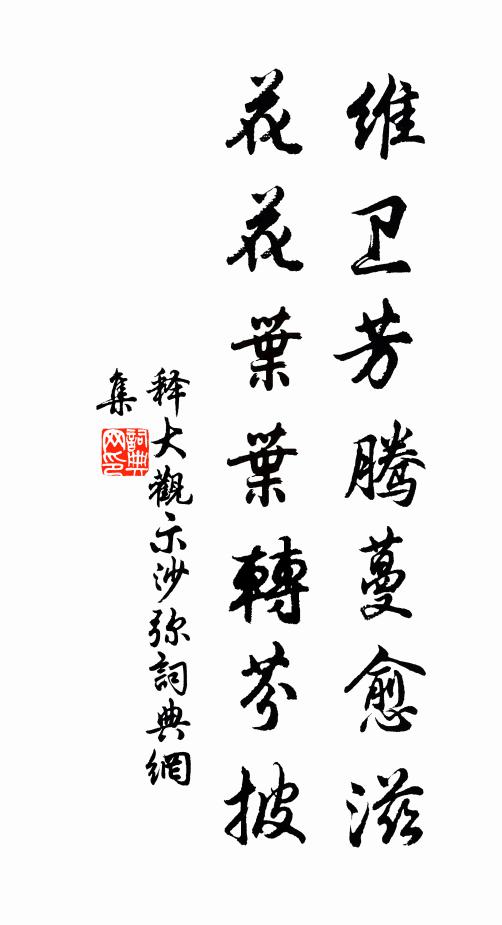 维卫芳腾蔓愈滋
花花葉葉轉芬披
释大觀示沙弥詞典網
集
詞典网印